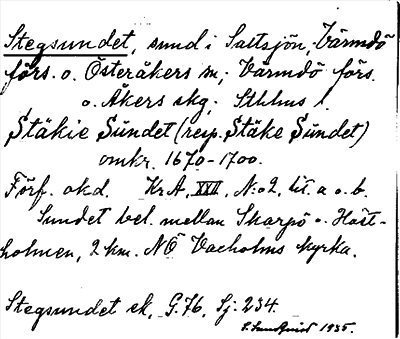 Stegsundet, sund i Saltsjön, Värmdö
förs. o. Österåkers sn, Värmdö förs.
o. Åkers skg. Sthlms l.
Stäkie Sundet (resp. Stäke Sundet)
omkr. 1670-1700.
Förf. okd. Kr.A. XXII, N:o 2, lit. a o. b.
Sundet bel. mellan Skarpö o. Häst-
holmen, 2 km. NÖ Vaxholms kyrka.
Stegsundet ek. G. 76, Sj: 234.
1935.